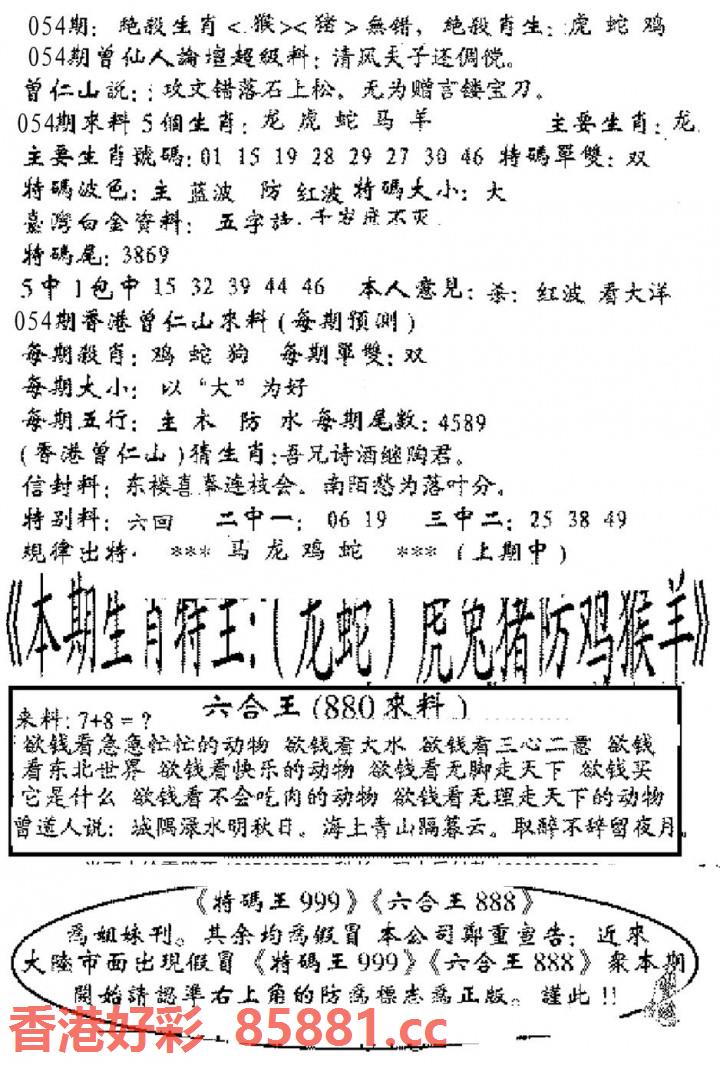 054期：絶殺生肖<猴><猪>無錯，絶殺肖生：虎 蛇 鸡
054期曾仙人論壇超級料：清风天子还倜傥。
曾仁山説：：攻文错落石上松，无为赠言镂宝刀。
054期來料5個生肖：龙 虎 蛇 马 羊 主要生肖：龙
主要生肖號碼：01 15 19 28 29 27 30 46 特碼單雙：双
特碼波色：主 蓝波 防 红波 特碼大小：大
臺灣白金資料：五字話
特碼尾：3869
5中1包中 15 32 39 44 46 本人意見：杀：红波 看大洋
054期香港曾仁山來料(每期預測)
每期殺肖：鸡 蛇 狗 每期單雙：双
每期大小：以“大”为好
每期五行：主 木 防 水 每期尾數：4589
(香港曾仁山)猜生肖：吾兄诗酒继陶君。
信封料：东楼喜幕连枝会。南陌愁为落叶分。
特别料：六回 二中一：06 19 三中二：25 38 49
規律出特. *** 马 龙 鸡 蛇 ***(上期中)
《本期生肖特王：(龙蛇)虎兔猪防鸡猴羊》
六合王(880來料)
来料：7+8=?
欲钱看急急忙忙的动物 欲钱看大水 欲钱看三心二意 欲钱
看东北世界 欲钱看快乐的动物 欲钱看无脚走天下 欲钱买
它是什么 欲钱看不会吃肉的动物 欲钱看无理走天下的动物
曾道人说：城隅渌水明秋日。海上青山隔暮云。取醉不辞留夜月。
《特碼王999》《六合王888》
爲姐妹刊。其余均爲假冒 本公司鄭重宣告：近來
大陸市面出現假冒《特碼王999》《六合王888》衆本期
開始請認準右上角的防爲標志爲正版。謹此!!
香港好彩 85881.cc